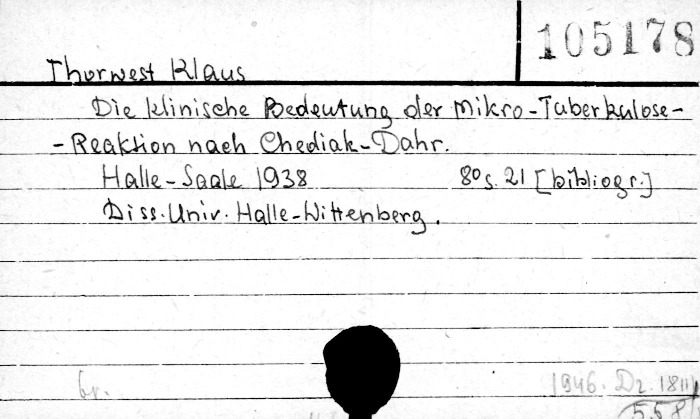 105178
Thorwest Klaus
Die klinische Bedeutung der Mikro-Tuberkulose-
-Reaktion nach Chediak-Dahr.
Halle-Saale 1938 80 s. 21 [bibliogr.]
Diss. Univ. Halle-Wittenberg.
br. 1946. Dz. 1811